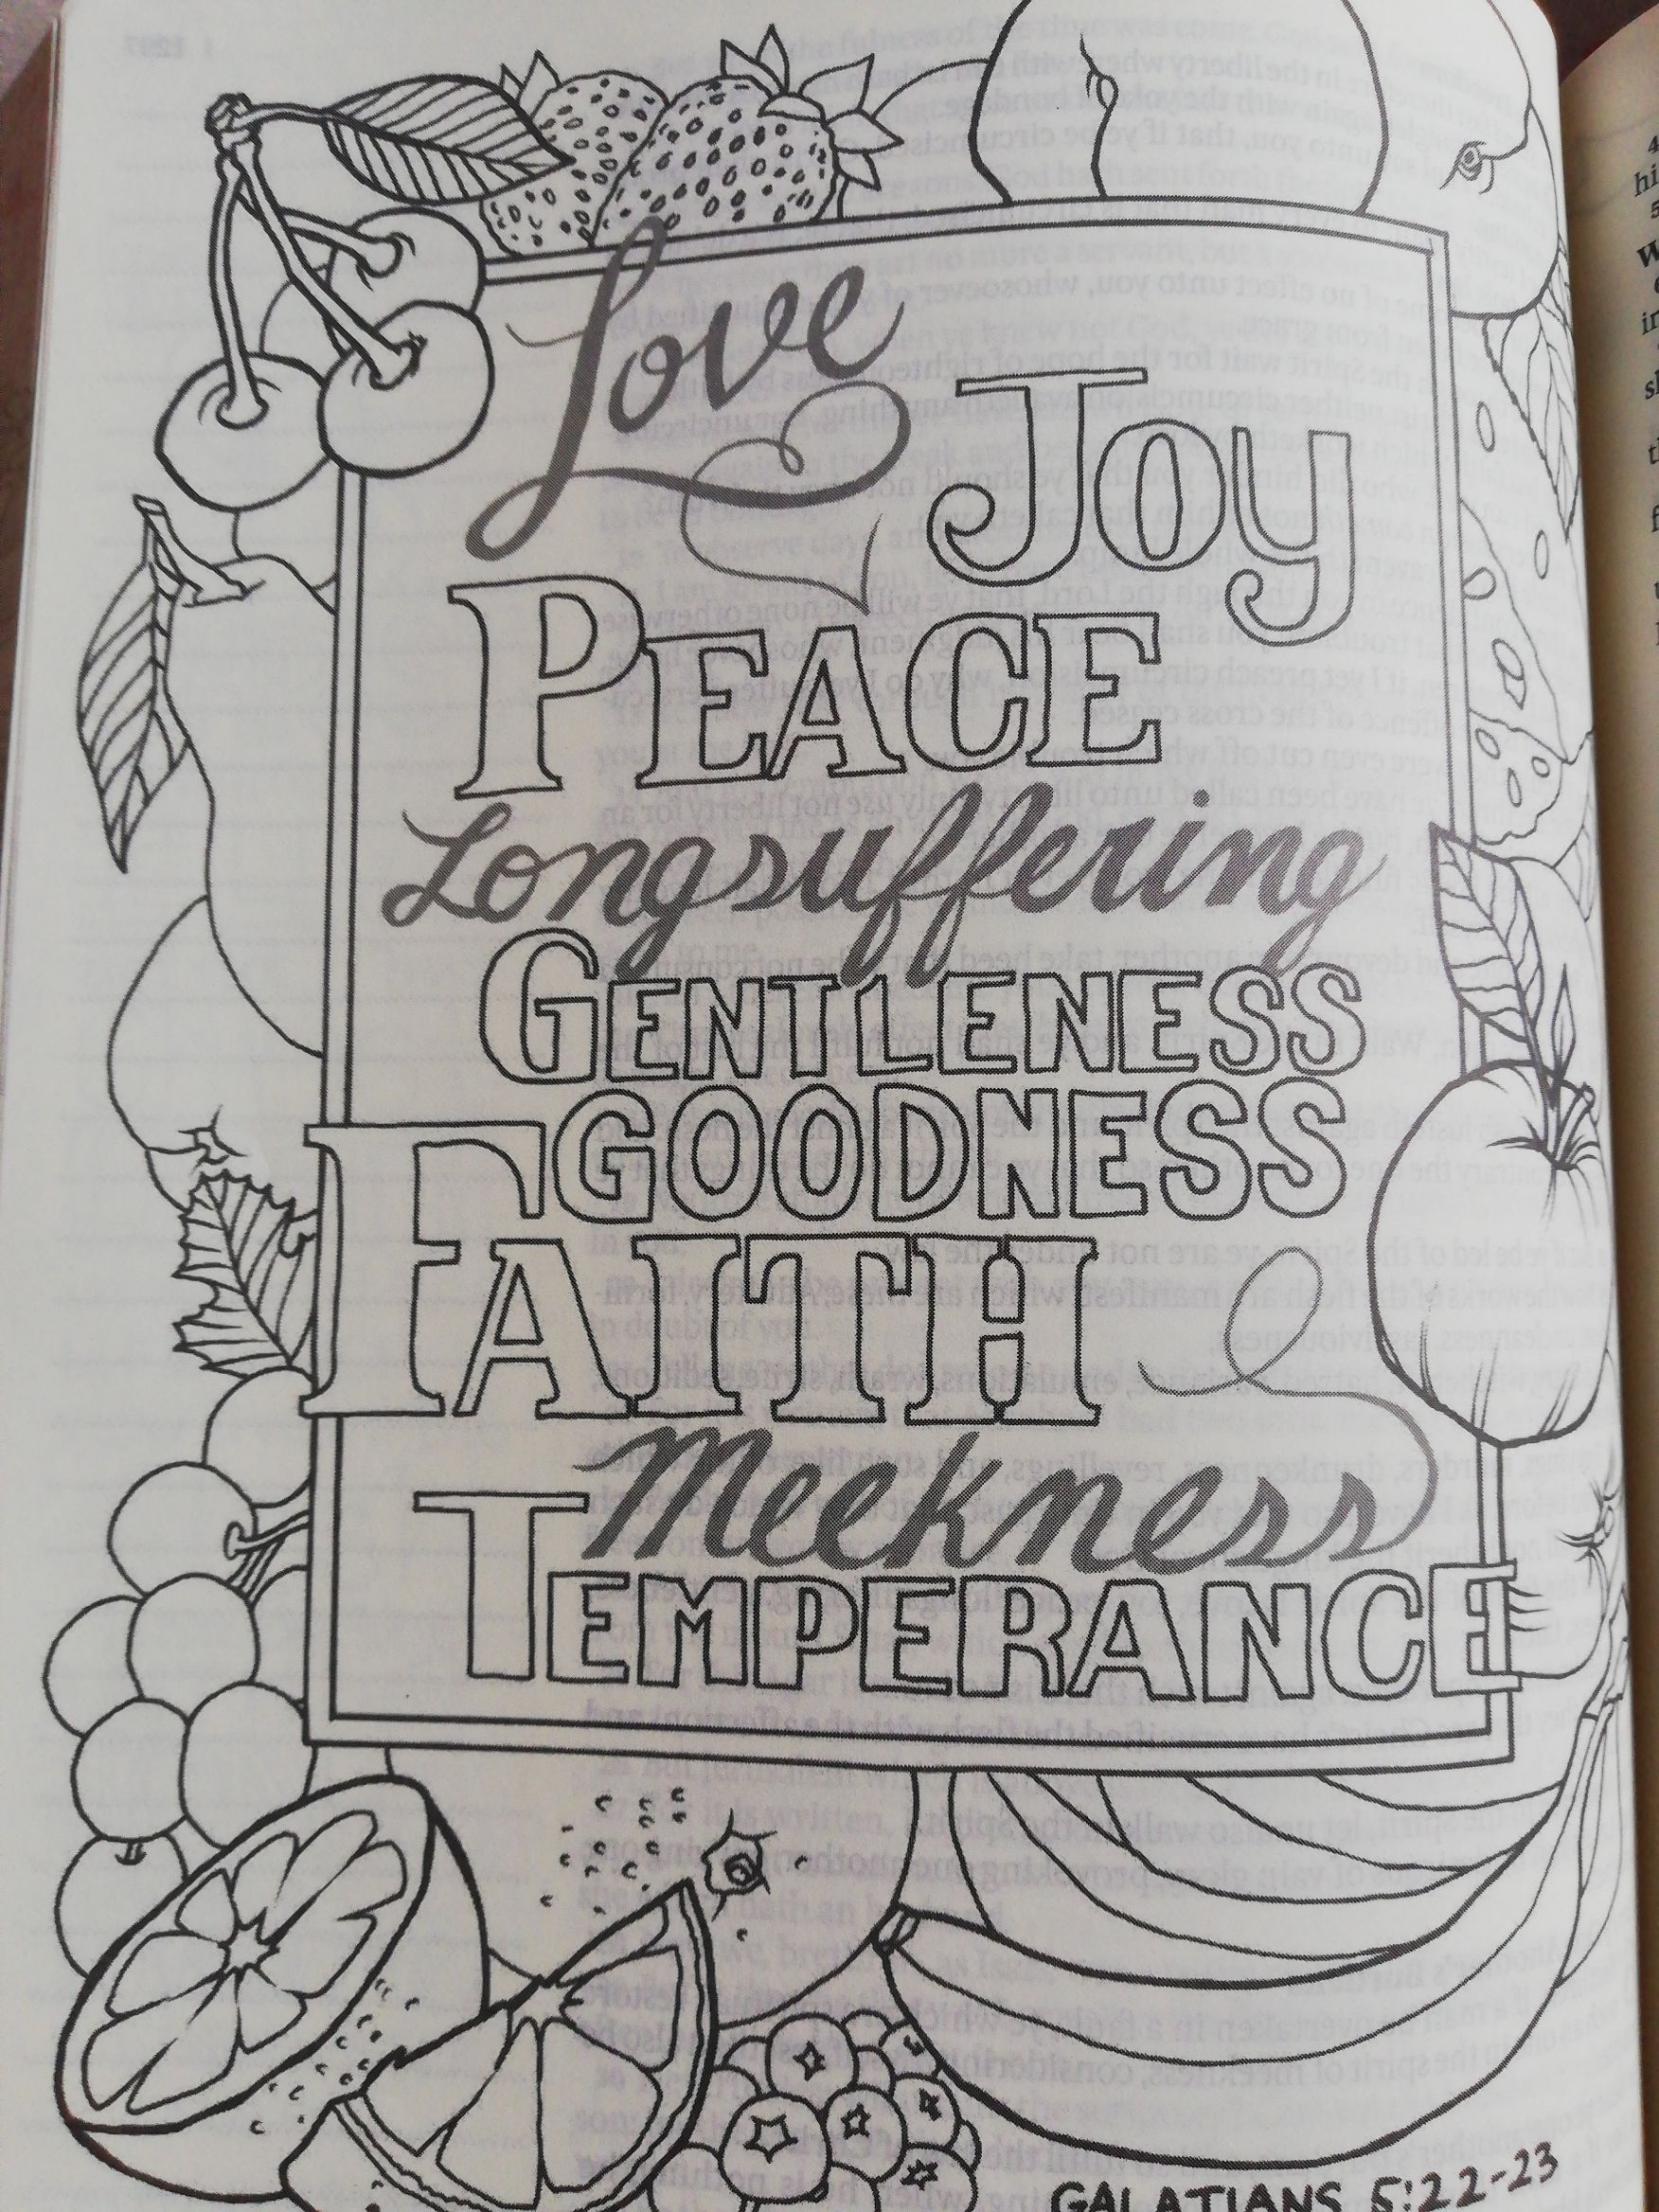 Love
Joy
PEACE
Longsuffering
GENTLENESS
GOODNESS
FAITH
Meekness
TEMPERANCE
GALATIANS 5:22-23